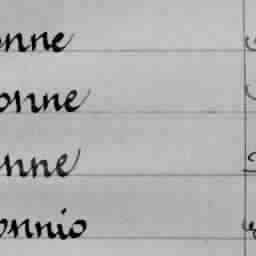 onne
onne
nne
onnio